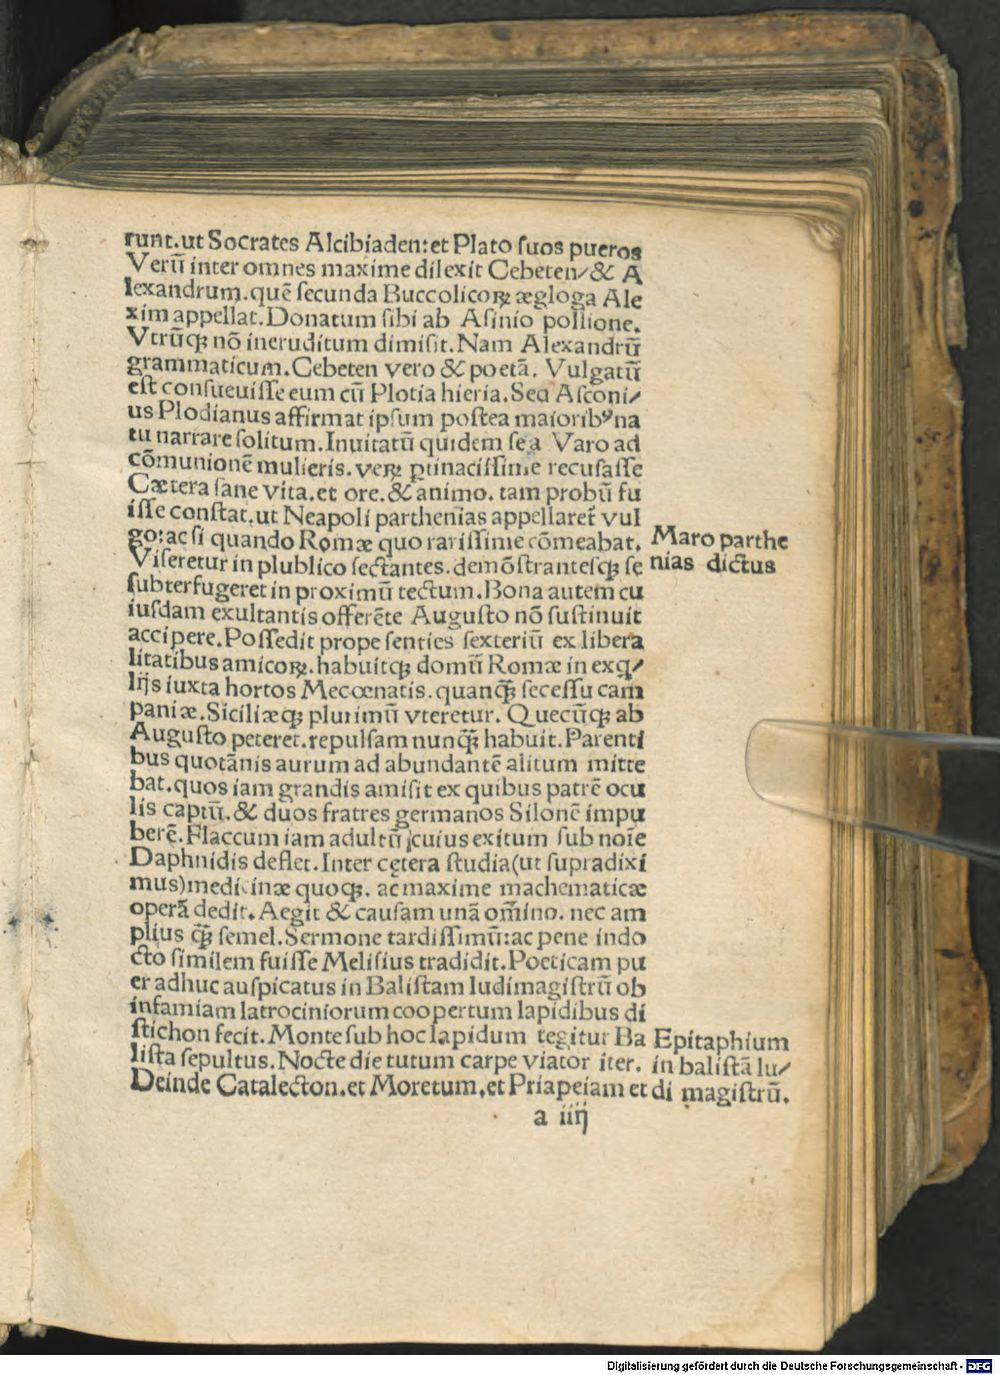 runt.ut Socrates Alcibiaden:et Plato suos pueros
Verū inter omnes maxime dilexit Cebeten/& A
lexandrum.quē secunda Buccolicoꝝ ægloga Ale
xim appellat.Donatum sibi ab Asinio pollione.
Vtrūqꝫ nō ineruditum dimisit.Nam Alexandrū
grammaticum.Cebeten vero & poetā. Vulgatū
est consueuisse eum cū Plotia hieria.Sed Asconi/
us Plodianus affirmat ipsum postea maioribꝰ na
tu narrare solitum.Inuitatū quidem se a Varo ad
cōmunionē mulieris.veꝝ ꝑtinacissime recusasse
Cætera sane vita.et ore.& animo. tam probū fu
isse constat.ut Neapoli parthenias appellaret̄ vul
go:ac si quando Romæ quo rarissime cōmeabat.
Viseretur in plublico sectantes.demōstrantesqꝫ se
subterfugeret in proximū tectum.Bona autem cu
iusdam exultantis offerēte Augusto nō sustinuit
accipere.Possedit prope senties sexteriū ex libera
litatibus amicoꝝ.habuitqꝫ domū Romæ in exq/
lijs iuxta hortos Mecœnatis.quanqꝫ̄ secessu cam
paniæ.Siciliæqꝫ plurimū vteretur. Quecūqꝫ ab
Augusto peteret.repulsam nunqꝫ̄ habuit.Parenti
bus quotānis aurum ad abundantē alitum mitte
bat.quos iam grandis amisit ex quibus patrē ocu
lis captū.& duos fratres germanos Silonē impu
berē.Flaccum iam adultū cuius exitum sub noīe
Daphnidis deflet.Inter cętera studia(ut supra dixi
mus)medicinæ quoqꝫ. ac maxime mathematicæ
operā dedit.Aegit & causam unā om̄ino. nec am
plius qꝫ̄ semel.Sermone tardissimū:ac pene indo
cto similem fuisse Melisius tradidit.Poeticam pu
er adhuc auspicatus in Balistam ludimagistrū ob
infamiam latrociniorum coopertum lapidibus di
stichon fecit.Monte sub hoc lapidum tegitur Ba
lista sepultus.Nocte die tutum carpe viator iter.
Deinde Catalecton.et Moretum.et Priapeiam et
a iiij
Maro parthe
nias dictus
Epitaphium
in balistā lu/
di magistrū.
Digitalisierung gefördert durch die Deutsche Forschungsgemeinschaft - DFG